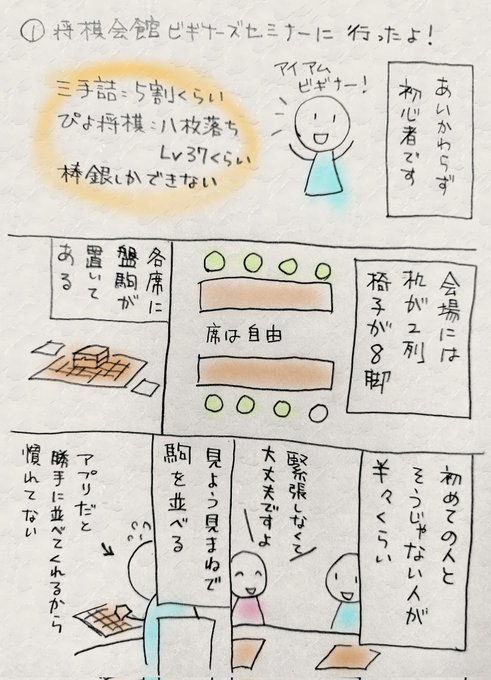 ① 将棋会館ビギナーズセミナーに 行ったよ!
あいかわらず
初心者です
アイアム
ビギナー!
三手詰:5割くらい
ぴよ将棋:八枚落ち
Lv37くらい
棒銀しかできない
会場には
机が2列
椅子が8脚
席は自由
各席に
盤駒が
置いて
ある
初めての人と
そうじゃない人が
半々くらい
緊張しなくて
大丈夫ですよ
見よう見まねで
駒を並べる
アプリだと
勝手に並べてくれるから
慣れてない